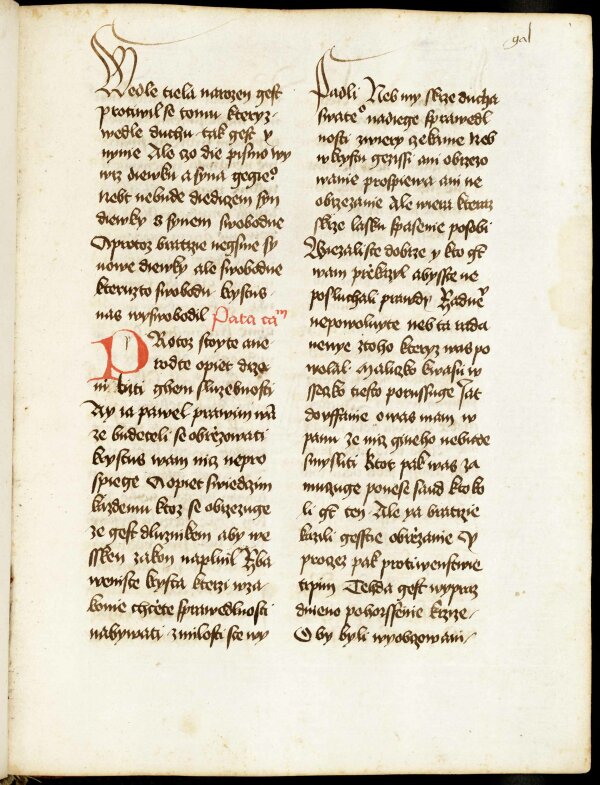 gal
Wedle tiela narozen gest
protiwil se tomu kteryz
wedle duchu tak gest y
nynie Ale czo die pismo wy
wrz diewku a syna gegieº
Nebt nebude diedizem syn
diewky s synem swobodne
A protoz bratrzie negsme sy
nowe diewky ale swobodne
kteruzto swobodu krystus
nas wyswobodil Pata ca
PRotoz stoyte a ne
rodte opiet drze
ni biti ghem sluzebnosti
Ay ia pawel prawim wā
ze budeteli se obrězowati
krystus wam nicz nepro
spiege A opiet swiedczim
kazdemu ktoz se obrzezuge
ze gest dluznikem aby we
ssken zakon naplnil Zba
weniste krysta kterzi wza
konie chcěte sprawedlnosti
nabywati z milosti ste wy
Padli Neb my skrze ducha
swateº z nadiege sprawedl
nosti zwiery czekame Neb
w krystu gezissi ani obrzezo
wanie prospiewa ani ne
obrzezanie Ale wiera kteraz
skrze lasku spasenie posobi
Biezaliste dobrze y kto gt
wam překazyl abysste ne
posluchali prawdy Zadneº
nepowoluyte neb ta rada
nenye ztoho kteryz was po
wolal Maliczko kwasu w
ssecko tiesto porussuge Jat
dowffanie o was mam w
panu ze nicz gineho nebude
smysliti Ktot pak was za
mucuge ponese saud kto ko
li gt ten Ale ya bratrzie
kazili gesstie obřezanie Y
procez pak protiwenstwie
trpim Tehda gest wypraz
dnieno pohorssenie krzize
O by byli wyobrzezowani